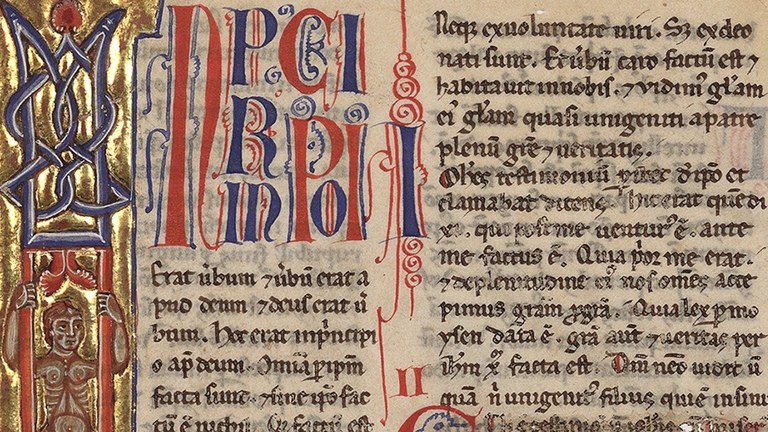 NPCI
RPI
INPO
Erat ūbum ⁊ ūbū erat a
pud deum ⁊ deus erat ū
bum. Hoc erat inpͥncipi
o apᷘ deum. Omīa ꝑ ip̄m
facta sunt. ⁊ sine ip̄o fac
tū ē nichil. Q̄ factū est
Neq; ex uoluntate uiri. Sꝫ ex deo
nati sunt. Et ūbū caro factū est ⁊
habitauit in nobis. ⁊ vidimꝰ gl̄am
eiꝰ gl̄am quasi unigeniti a patre
plenū gr̄e ⁊ ueritatis.
I
Oh̄es testimoniū ꝑhibet d̓ ip̄o et
clamabat dicens. Hic erat quē di
xi. qui post me uenturꝰ ē. ante
me factus ē. Quia pͥor me erat.
⁊ de plenitudine eiꝰ nos om̄s acce
pimus gr̄am ꝓ gr̄a. Quia lex ꝑ mo
ysen data ē. gr̄a aut̄ ⁊ ueritas per
ih̄m xp̄ facta est. Dm̄ nēo uidit ū
II
quā nͥ unigenitꝰ filius qui ē in sinu